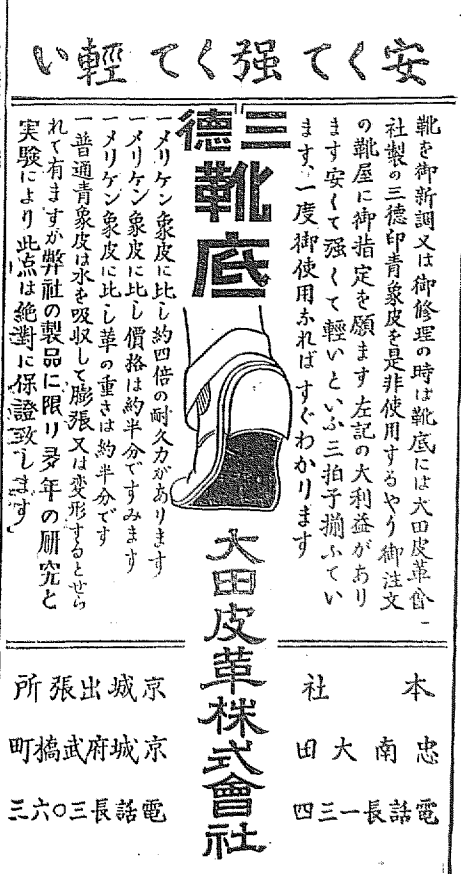 安くて强くて輕い
靴を御新調又は御修理の時は靴底には大田皮革會
社製の三德印青象皮を是非使用するやう御注文
の靴屋に御指定を願ます左記の大利益があり
ます安くて强くて輕いといふ三拍子揃ふてい
ます、一度御使用なればすぐわかります
三德
靴底
大田皮革株式會社
一メリケン象皮に比し約四倍の耐久力があります
一メリケン象皮に比し價格は約半分ですみます
一メリケン象皮に比し革の重さは約半分です
一普通青象皮は水を吸収して膨張又は変形するとせら
れて有ますが弊社の製品に限り多年の研究と
実験により此点は絶對に保證致します
本社
忠南大田
電話長一三四
京城出張所
京城府武橋町
電話長三〇六三